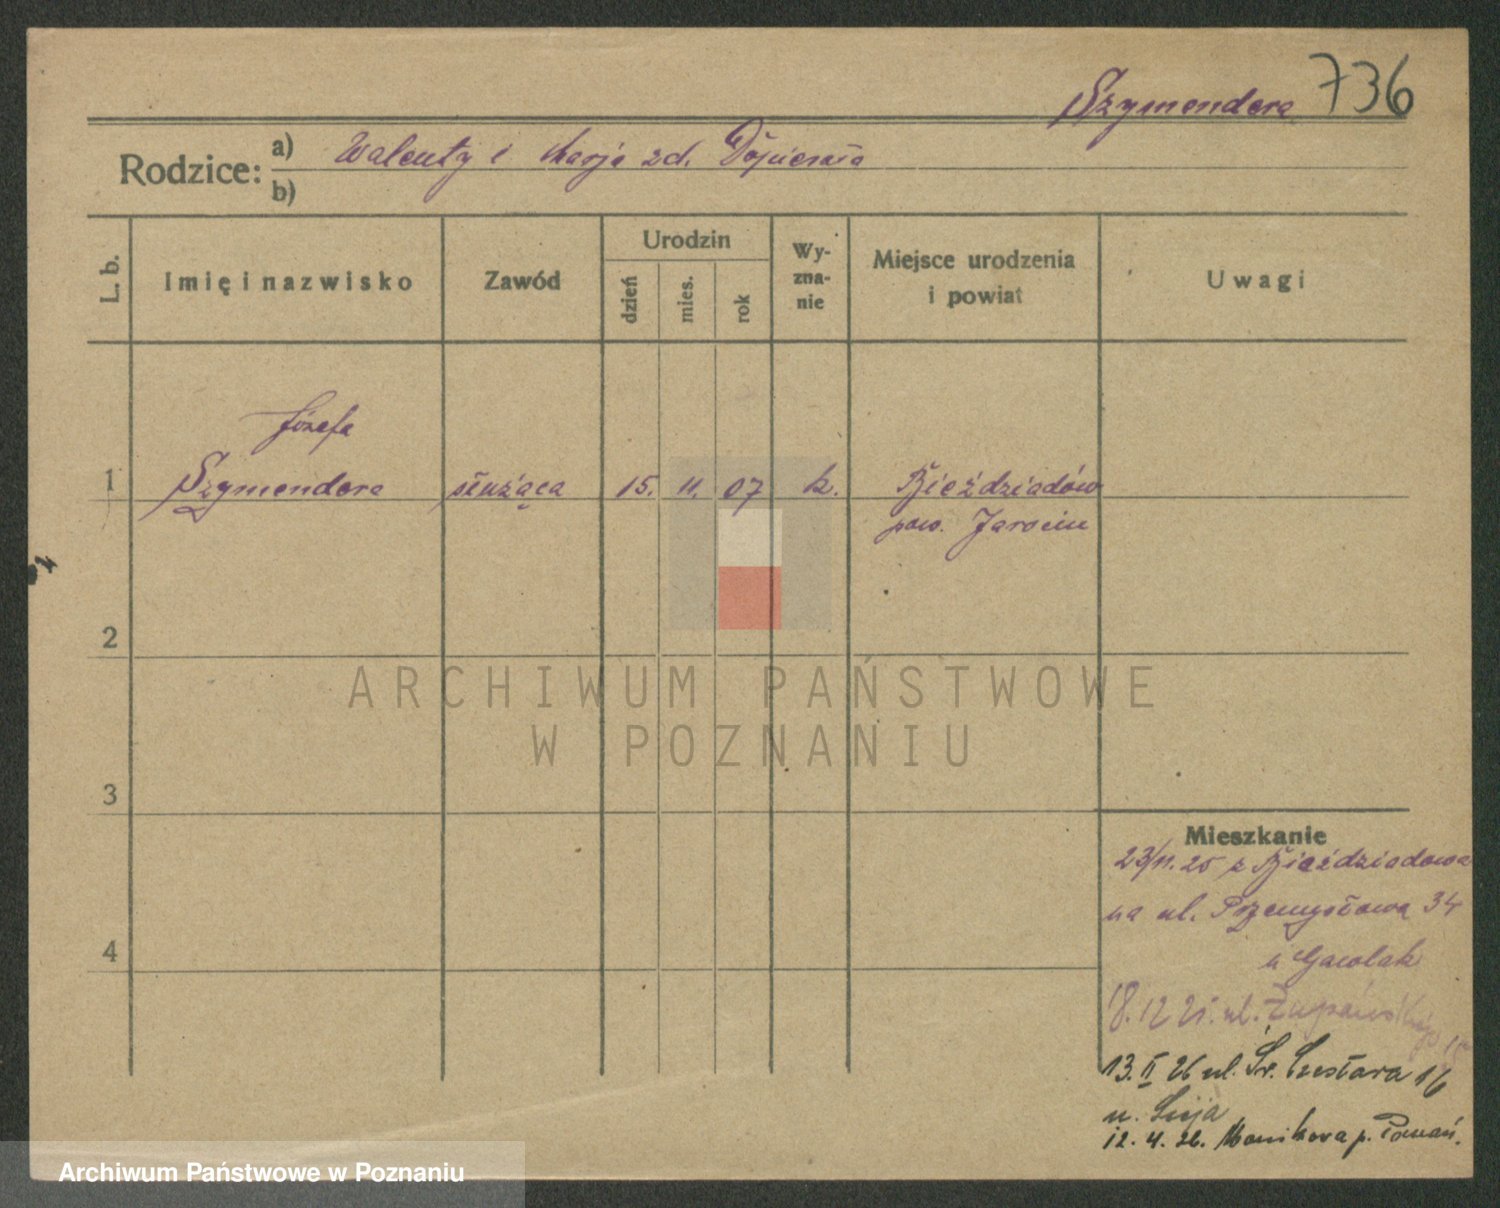 Szymendera 736
Rodzice: a) Walenty i Marja zd. Dopierała
b)
L. b.
Imię i nazwisko
Zawód
Urodzin
dzień
mies.
rok
Wy-
zna-
nie
Miejsce urodzenia
i powiat
Uwagi
Józefa
1 Szymendera służąca 15. 11. 07 k. Bieździadów
pow. Jarocin
2
3
4
Mieszkanie
23/11.25 z Bieździadowa
na ul. Przemysłowa 34
u
18.12 25. ul. Żupańskiego
13. II 26 ul. Św. Czesława 16
u.
12. 4. 26. p. Poznań.
ARCHIWUM PAŃSTWOWE
W POZNANIU
Archiwum Państwowe w Poznaniu